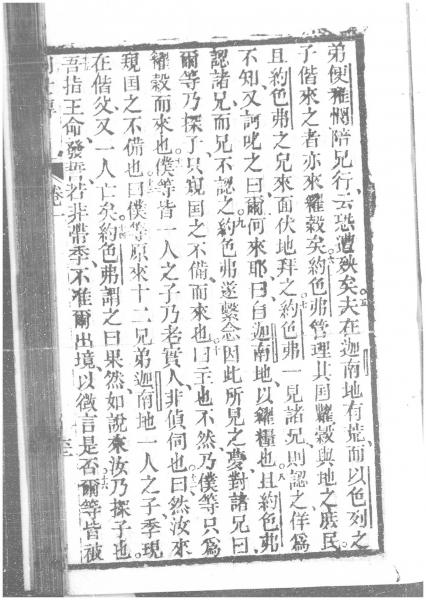 弟便雅憫陪兄行云恐遭殃矣五夫在迦南地有荒而以色列之
子偕來之者亦來糴穀矣六約色弗管理其国糶穀與地之庶民
且約色弗之兄來面伏地拜之七約色弗一見諸兄則認之佯為
不知又訶叱之曰爾何來耶曰自迦南地以糴糧也八且約色弗
認諸兄而兄不認之九約色弗遂繫念因此所見之夢對諸兄曰
爾等乃探子只覘国之不備而來也十曰主也不然乃僕等只為
糴穀而來也十一僕等皆一人之子乃老實人非偵伺也十二曰然汝來
覘国之不備也十三曰僕等原來十二兄弟迦南地一人之子季現
在偕父又一人亡矣十四約色弗謂之曰果然如說來汝乃探子也
十五吾指王命發誓若非帶季不准爾出境以徵言是否十六爾等皆被
卷一